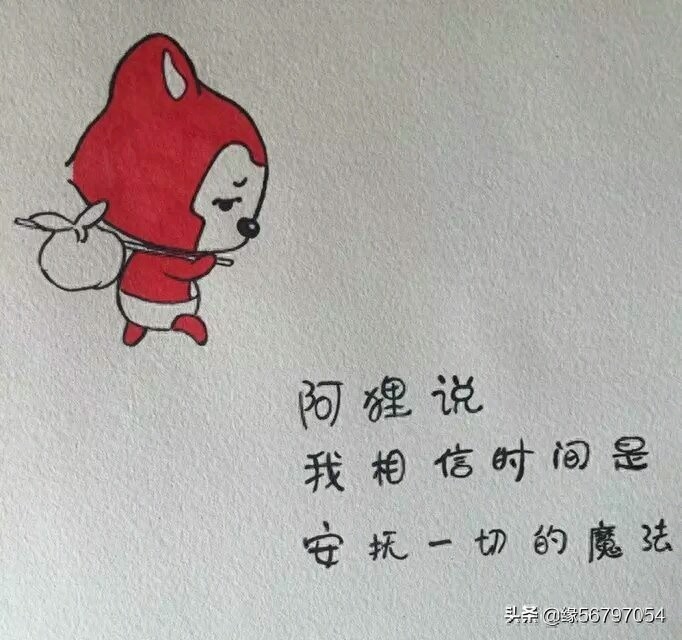 阿狸说
我相信时间是
安抚一切的魔法
头条 @缘56797054